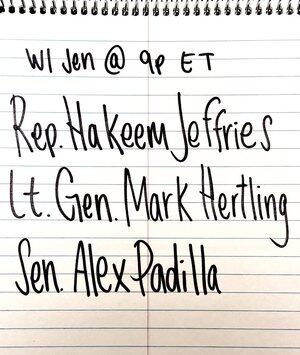 W/ Jen @ 9p ET
Rep. Hakeem Jeffries
Lt. Gen. Mark Hertling
Sen. Alex Padilla